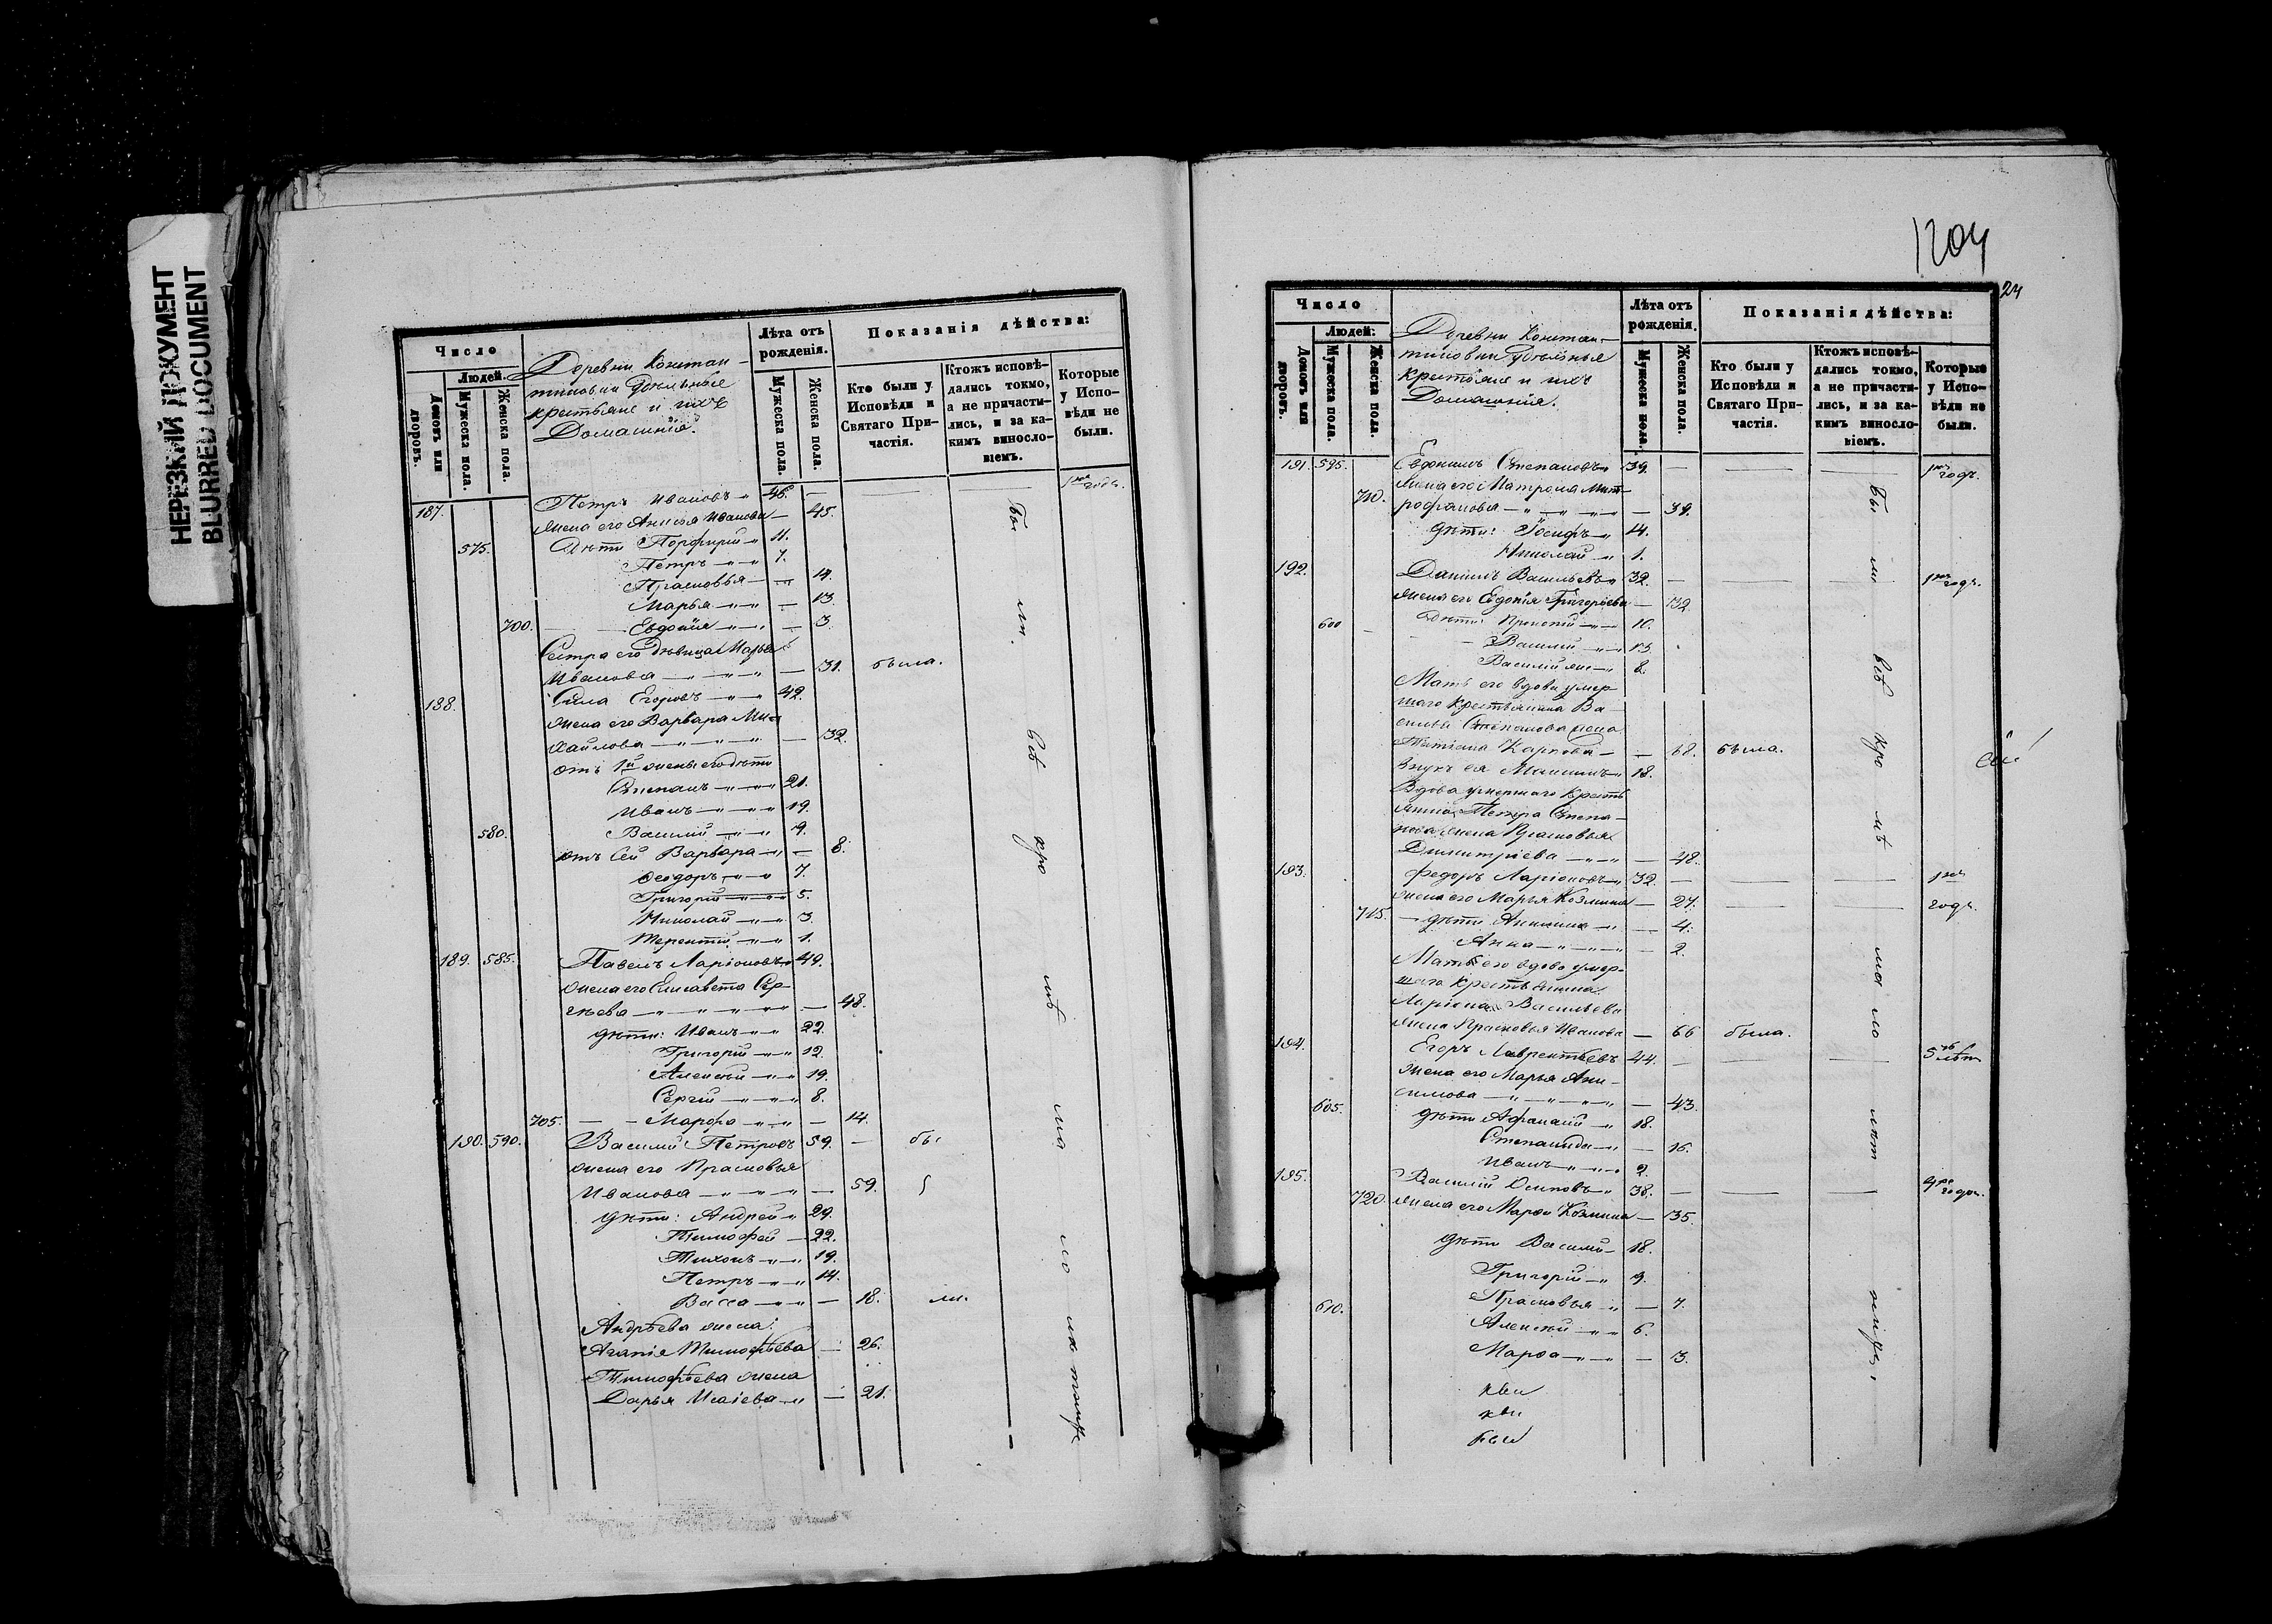 НЕРЕЗКИЙ ДОКУМЕНТ
BLURRED DOCUMENT
Число
Людей.
Домовъ или дворовъ.
Мужеска пола.
Женска пола.
Деревни Констан-
тиновки Удѣльные
крестьяне и ихъ
Домашнія.
Лѣта отъ рожденія.
Мужеска пола.
Женска пола.
Показанія дѣйства:
Кто были у Исповѣди и Святаго При-частія.
Ктожъ исповѣ-дались токмо, а не причасти-лись, и за ка-кимъ винословіемъ.
Которые у Испо-вѣди не были.
187. Петръ Ивановъ 46. —
жена его Анисія Иванова — 45.
575. Дѣти Порфирій 11.
Петръ 7.
Прасковья — 14.
Марья — 13.
700. Евдокія — 3.
Сестра его Дѣвица Марья
Иванова — 31. была.
188. Сила Егоровъ 42.
жена его Варвара Ми-
хайлова — 32.
отъ 1й жены его дѣти
Степанъ 21.
Иванъ 19.
580. Василій 9.
отъ сей Варвара — 8.
Ѳеодоръ 7.
Григорій 5.
Николай 3.
Терентій 1.
189. 585. Павелъ Ларіоновъ 49.
жена его Елисавета Сер-
гѣева — 48.
дѣти: Иванъ 22.
Григорій 12.
Алексѣй 19.
Сергій 8.
705. Марфа — 14.
190. 590. Василій Петровъ 59. — бы
жена его Прасковья
Иванова — 59.
дѣти: Андрей 29.
Тимофей 22.
Тихонъ 19.
Петръ 14.
Васса — 18. ли.
Андрѣева жена
Агапія Тимофѣева — 26.
Тимофѣева жена
Дарья Исаіева — 21.
1204
24
Число
Людей:
Домовъ или дворовъ.
Мужеска пола.
Женска пола.
Деревни Констан-
тиновки Удѣльные
крестьяне и ихъ
Домашнія.
Лѣта отъ рожденія.
Мужеска пола.
Женска пола.
Показанія дѣйства:
Кто были у Исповѣди и Святаго При-частія.
Ктожъ исповѣ-дались токмо, а не причасти-лись, и за ка-кимъ винословіемъ.
Которые у Испо-вѣди не были.
191. 595. Евдокимъ Степановъ 39. —
710. жена его Матрона Мит-
рофанова — 39.
дѣти: Іосифъ 14.
Николай 1.
192. Даніилъ Васильевъ 32. —
жена его Евдокія Григорьева — 32
600 Дѣти: Прокопій 10.
Василій 13.
Василій же 8.
Мать его вдова умер-
шаго крестьянина Ва-
силья Степанова жена
Татіана Карпова — 68. была.
Внукъ ея Максимъ 18.
Вдова умершаго Кресть
янина Петра Степа-
нова жена Прасковья
Димитріева — 48.
193. Федоръ Ларіоновъ 32. —
жена его Марья Козмина — 27.
715. дѣти Акилина — 4.
Анна — 2.
Мать его вдова умер-
шаго крестьянина
Ларіона Васильева
жена Прасковья Иванова — 66 была.
194. Егоръ Лаврентьевъ 44. — 5 лѣтъ
жена его Марья Ани-
симова — 43.
605. дѣти Афанасій 18.
Степанида — 16.
Иванъ 2.
195. Василій Осиповъ 38. —
720. жена его Марфа Козмина — 35.
дѣти Василій 18.
Григорій 9.
610. Прасковья — 7.
Алексѣй 6.
Марфа — 3.